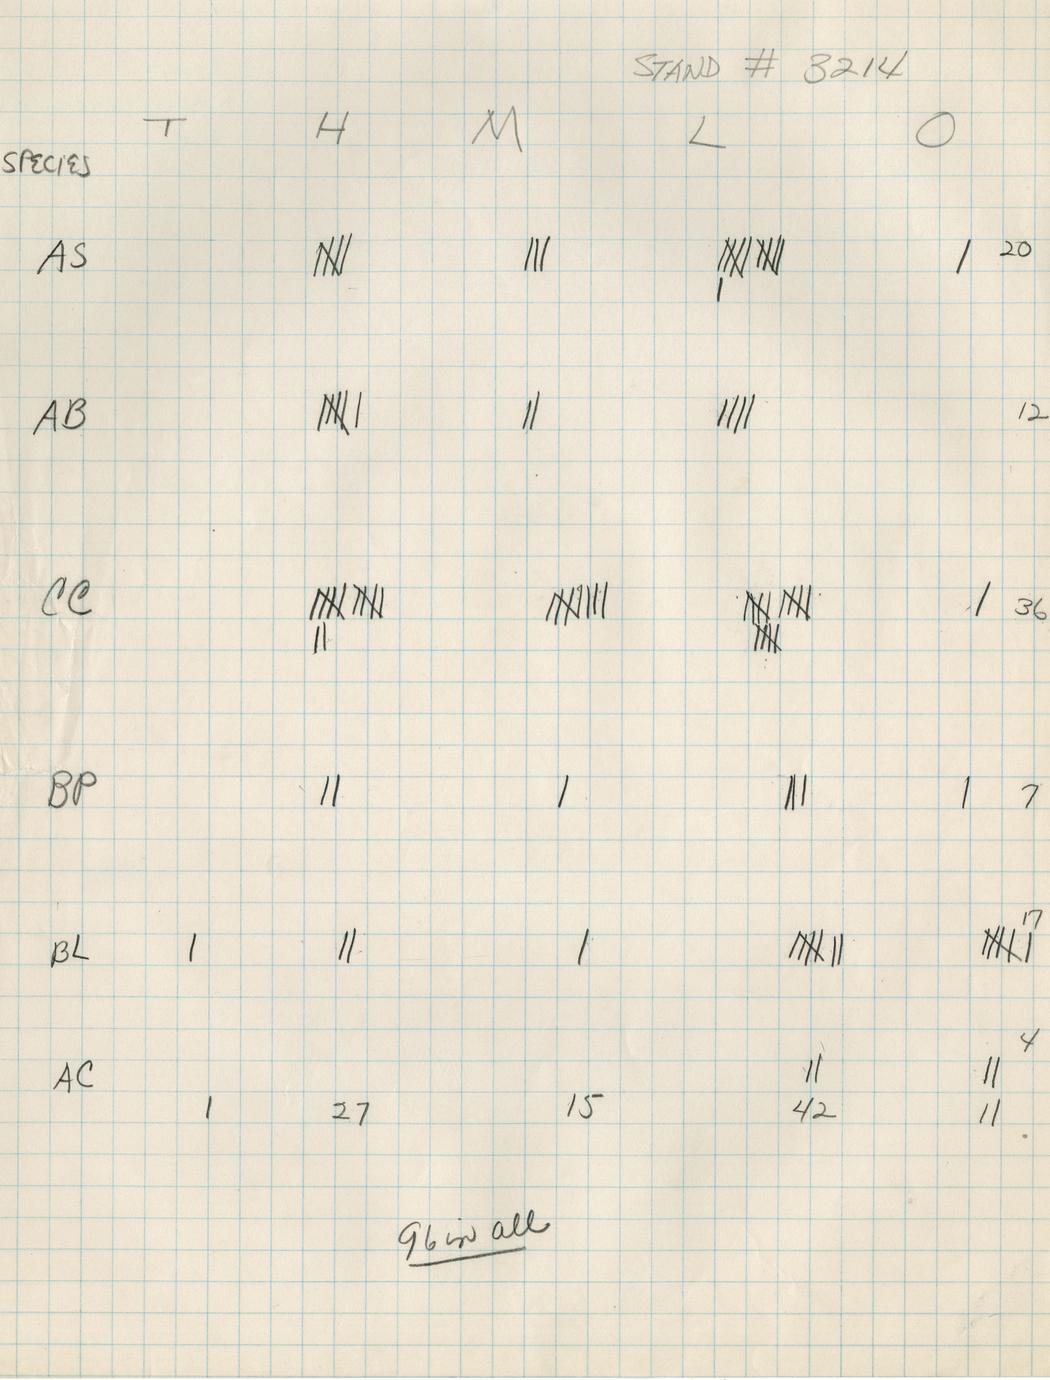 STAND # 3214
T H M L O
SPECIES
AS 𝍸 ||| 𝍸 𝍸 | | 20
AB 𝍸 | || |||| 12
CC 𝍸 𝍸 || 𝍸 ||| 𝍸 𝍸 𝍸 | 36
BP || | ||| | 7
BL | || | 𝍸 || 𝍸 | 17
AC || || 4
1 27 15 42 11
96 in all